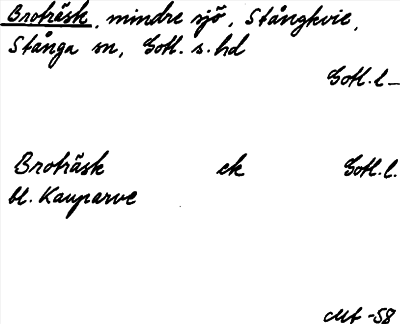 Broträsk, mindre sjö, Stångkvie,
Stånga sn, Gotl. s. hd
Gotl. l
Broträsk ek Gotl. l.
bl. Kauparve
Mt -58